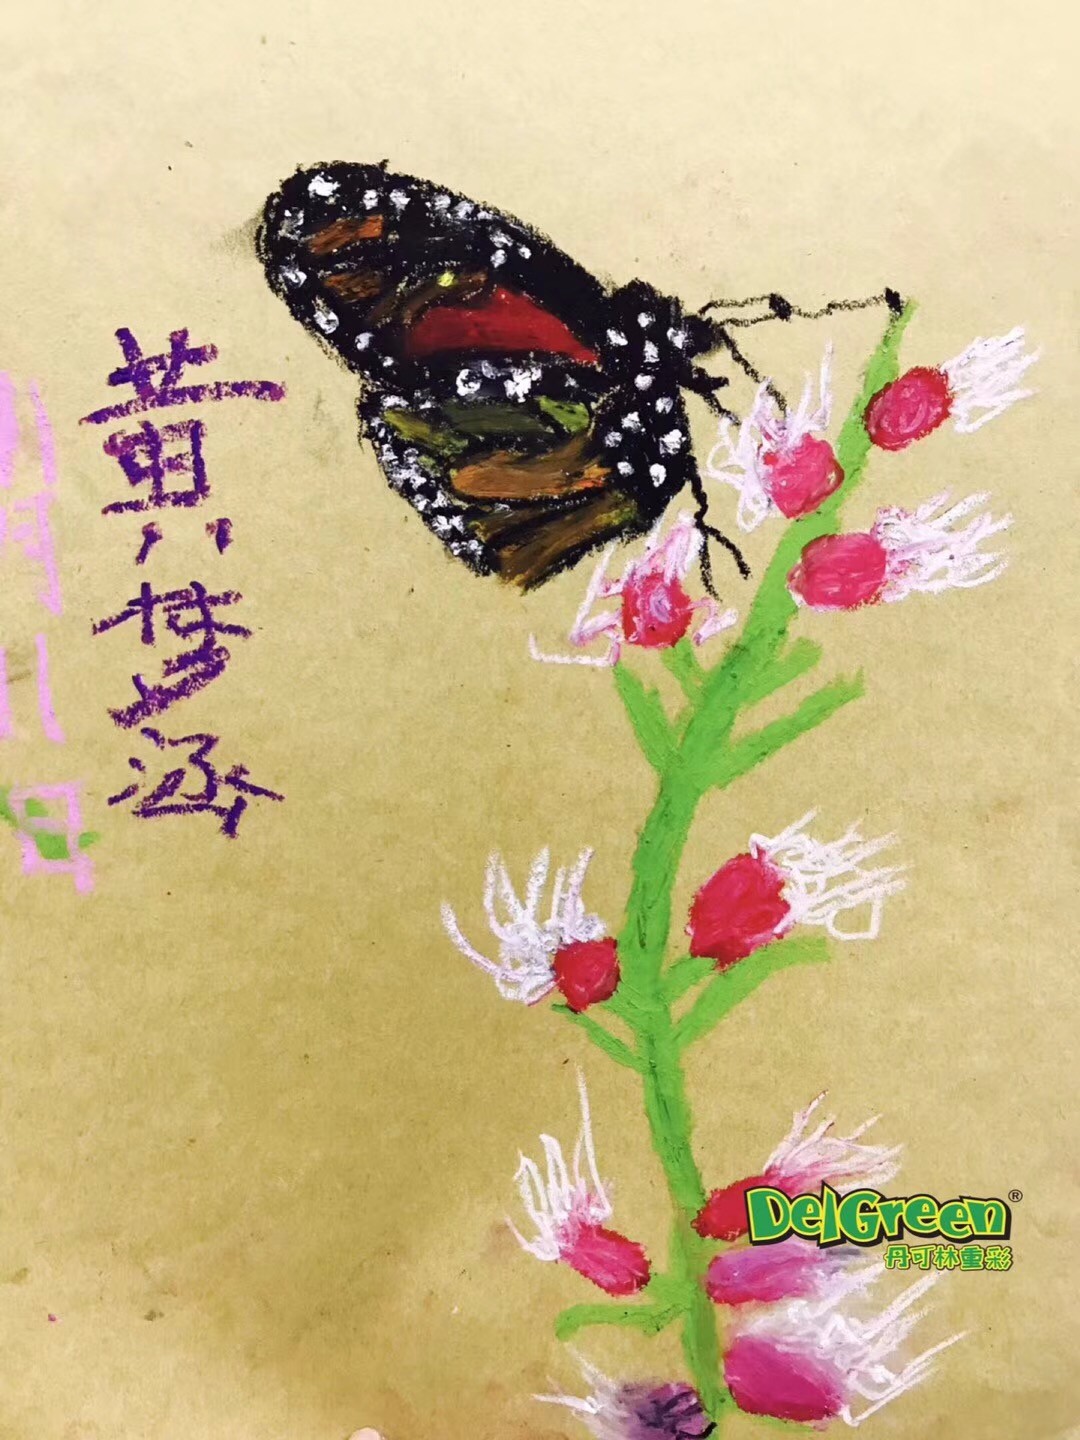 黄梦涵
DelGreen®
丹可林重彩